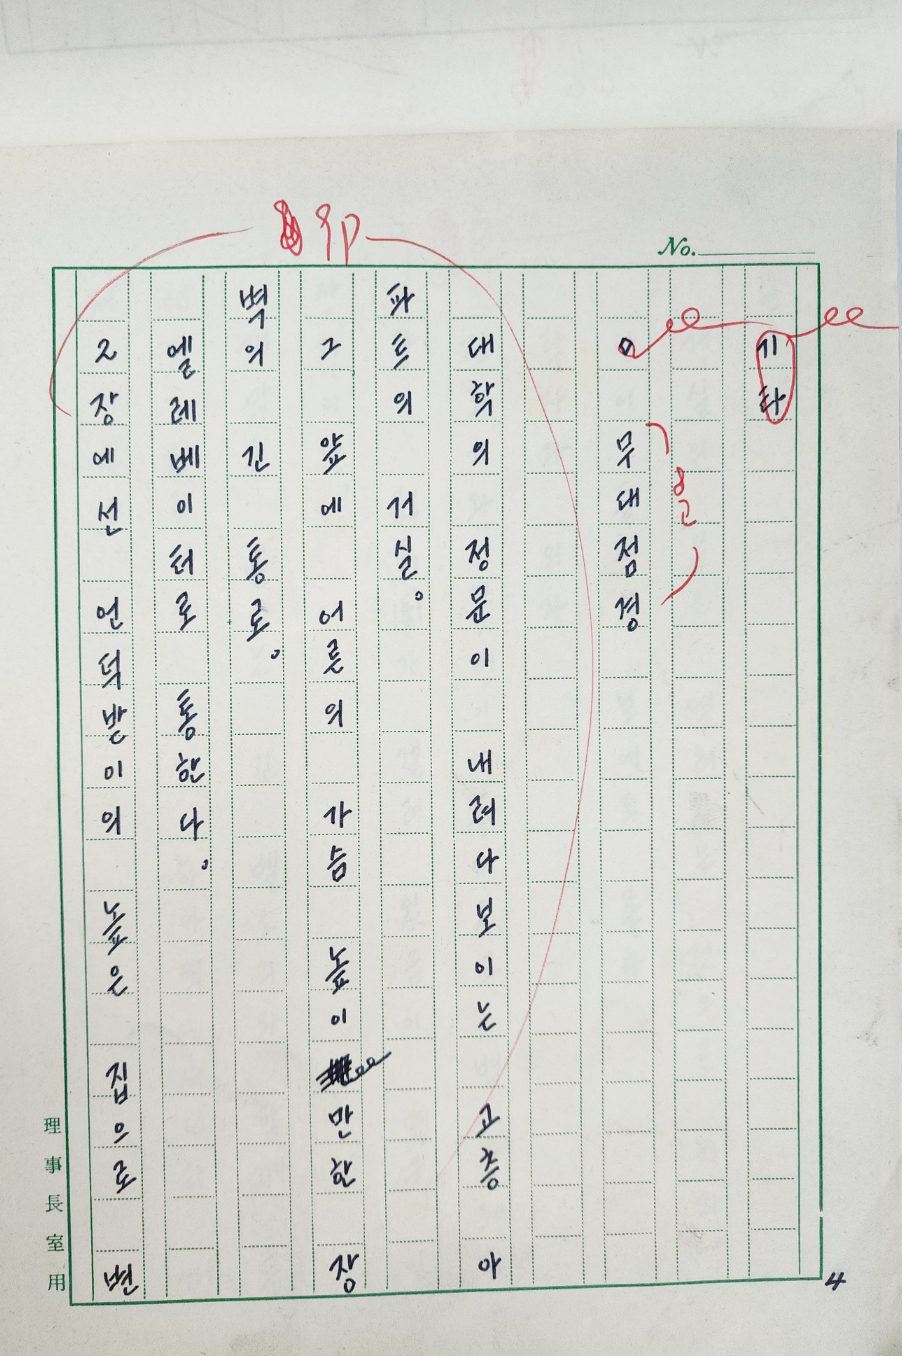 No.
기타
무대점경
대학의 정문이 내려다보이는 고층 아
파트의 거실。
그 앞에 어른의 가슴 높이 만한 장
벽의 긴 통로。
엘레베이터로 통한다。
2장에선 언덕받이의 높은 집으로 변
理事長室用
4